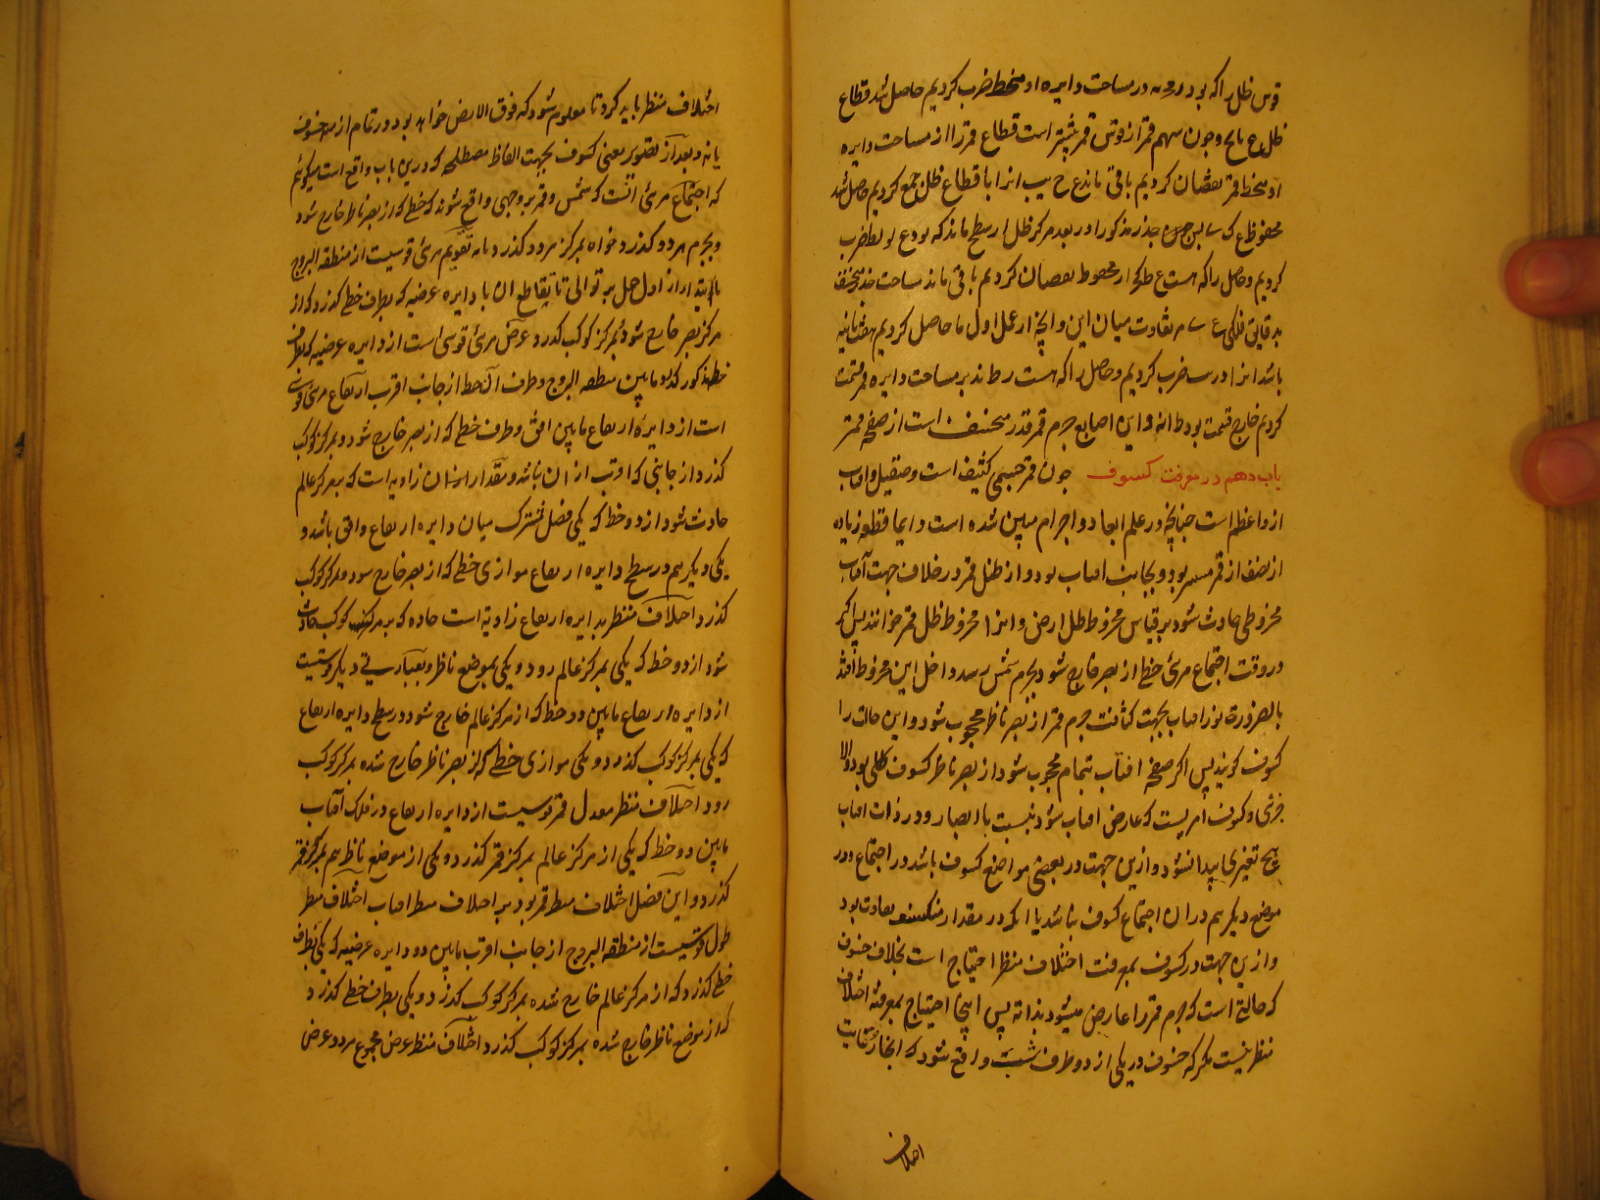 قوس ظل را که بود در مساحت دایره او منحط ضرب کردیم حاصل شد قطاع
ظل و چون سهم قمر از قوس قمر بیشتر است قطاع قمر را از مساحت دایره
قمر نقصان کردیم باقی ماند انرا با قطاع ظل جمع کردیم حاصل شد
محفوظ پس جذر مذکور را در بعد مرکز ظل ضرب
کردیم و حاصل را که هست از محفوظ نقصان کردیم باقی ماند مساحت
بدقایق فلکی تفاوت میان این و آنچه از عمل اول ما حاصل کردیم
باشد انرا در ضرب کردیم و حاصل را که هست بر مساحت دایره قمر قسمت
کردیم خارج قسمت بود و این اصابع جرم قمر قدر منخسف است از صفحه قمر
باب دهم در معرفت کسوف چون قمر جسمی کثیف است و صقیل و افتاب
ازو اعظم است چنانچه در علم ابعاد و اجرام مبین شده است دایما قطعه زیاده
از نصف از قمر مستنیر بود و بجانب افتاب بود و از ظل قمر در خلاف جهت آفتاب
مخروطی حادث شود بر قیاس مخروط ظل ارض و انرا مخروط ظل قمر خوانند پس اگر
در وقت اجتماع مرئی خطی از بصر خارج شود بجرم شمس رسد داخل این مخروط افتد
بالضرورة نور افتاب بجهت کثافت جرم قمر از بصر ناظر محجوب شود و این حالت را
کسوف کویند پس اگر صفحه افتاب بتمام محجوب شود از بصر ناظر کسوف کلی بود والا
جزئی و کسوف امریست که عارض افتاب شود نسبت با ابصار و در ذات افتاب
هیچ تغیری پیدا نشود و ازین جهت در بعضی مواضع کسوف باشد در اجتماع و در
موضع دیگر هم در ان اجتماع کسوف نباشد یا انکه در مقدار منکسف تفاوت بود
و ازین جهت در کسوف بمعرفت اختلاف منظر احتیاج است بخلاف خسوف
که حالتی است که جرم قمر را عارض میشود بذاته پس اینجا احتیاج بمعرفة اختلاف
منظر نیست مکر که خسوف در یکی از دو طرف شب واقع شود که انجا رعایت
اختلاف
اختلاف منظر باید کرد تا معلوم شود که فوق الارض خواهد بود در تمام ازمنه خسوف
یا نه و بعد از تصویر معنی کسوف بجهت الفاظ مصطلحه که درین باب واقع است میکوئیم
که اجتماع مرئی انست که شمس و قمر بر وجهی واقع شوند که خطی که از بصر ناظر خارج شود
و بجرم هر دو کذرد خواه بمرکز هر دو کذرد یا نه تقویم مرئی قوسیست از منطقه البروج
مابتدا از اول حمل بر توالی تا تقاطع ان با دایره عرضیه که بطرف خطی کذرد که از
مرکز بصر خارج شود بمرکز کوکب کذرد عرض مرئی قوسی است از دایره عرضیه که بطرف
خط مذکور کذرد مابین منطقه البروج و طرف آن خط از جانب اقرب ارتفاع مرئی قوسی
است از دایره ارتفاع مابین افق و طرف خطی که از بصر خارج شود و بمرکز کوکب
کذرد از جانبی که اقرب از ان نباشد و مقدار ان زاویه است که بمرکز عالم
حادث شود از دو خط که یکی فصل مشترک میان دایره ارتفاع و افق باشد و
یکی دیکر هم در سطح دایره ارتفاع موازی خطی که از بصر خارج شود و بمرکز کوکب
کذرد اختلاف منظر بدایره ارتفاع زاویه است حاده که بر مرکز کوکب حادث
شود از دو خط که یکی بمرکز عالم رود و یکی بموضع ناظر و بعبارتی دیکر قوسیست
از دایره ارتفاع مابین دو خط که از مرکز عالم خارج شود در سطح دایره ارتفاع
که یکی بمرکز کوکب کذرد و یکی موازی خطی که از بصر ناظر خارج شده بمرکز کوکب
رود اختلاف منظر معدل قمر قوسیست از دایره ارتفاع در فلک آفتاب
مابین دو خط که یکی از مرکز عالم بمرکز قمر کذرد و یکی از موضع ناظر هم بمرکز قمر
کذرد و این فضل اختلاف منظر قمر بود بر اختلاف منظر افتاب اختلاف منظر
طول قوسیست از منطقه البروج از جانب اقرب مابین دو دایره عرضیه که یکی بطرف
خطی کذرد که از مرکز عالم خارج شده بمرکز کوکب کذرد و یکی بطرف خطی کذرد
که از موضع ناظر خارج شده بمرکز کوکب کذرد اختلاف منظر عرض مجموع هر دو عرض